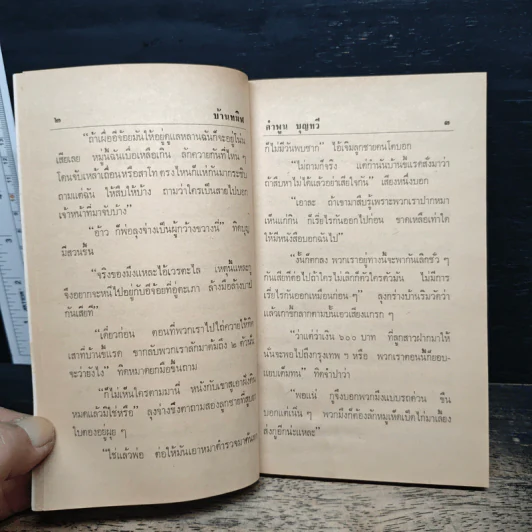 ๒ บ้านหมีห
"ถ้าเผื่ออีจ้อยมันให้อยู่ดูแลหลานฉันก็จะอยู่ไปนั่น
เสียเลย หมู่นี้ฉันเบื่อเหลือเกิน ลักควายกันที่ไหน ๆ
โดนจับเหาเถื่อนหรือล่าไก่ ตรงไหนก็แห่กันมากระชับ
ถามแต่ฉัน ให้สืบให้บ้าง ถามว่าใครเป็นสายไปบอก
เจ้าหน้าที่มาจับบ้าง"
"อ้าว ก็พ่อลุงจ้างเป็นผู้กว้างขวางนี่" ทิดบุญ
มีสวนขึ้น
"จริงของมึงแหละไอ้เวรตะไล เหตุนี้แหละๆ
จึงอยากจะหนีไปอยู่กับอีจ้อยที่อู่ตะเภา ล้างมือล้างบาป
กันเสียที"
"เดี๋ยวก่อน ตอนที่พวกเราไปไถ่ควายให้
เสาที่บ้านชีแรด ขากลับพวกเราลักมาตั้ง ๒ ตัวนั้น
จะว่ายังไง" ทิดหมาคอกมือขึ้นถาม
"ก็ไม่เห็นใครตามมานี่ หนังกับเขาสูเอาฝังดิน
หมดแล้วมิใช่หรือ" ลุงจ้างซึ่งตาถามสองลูกชายที่สูบยา
ใบตองอยู่ผุย ๆ
"ใช่แล้วพ่อ ต่อให้หมันเอาหมาตำรวจมาดม
คำพูน บุญทวี ๓
ก็ไม่มีวันพบซาก" ไอ้เจิมลูกชายคนโตบอก
"ไม่ถามก็จริง แต่กำนันบ้านชีแรดสั่งมาว่า
ถ้าสืบหาไม่ได้แล้วอย่าเสียใจกัน" เสียงหนึ่งบอก
"เอาละ ถ้าเขามาสืบรู้เพราะพวกเราปากหมา
เห็นแก่กิน ก็เรี่ยไรกันออกไปก่อน ขาดเหลือเท่าใด
ให้มีหนังสือบอกฉันไป"
"งั้นก็ตกลง พวกเราอยู่ทางนี้จะพากันเลิกชั่ว ๆ
กันเสียทีต่อไปถ้าใครไม่เลิกก็ตัวใครตัวมัน ไม่มีการ
เรี่ยไรกันออกเหมือนก่อน ๆ" ลุงกร่างบ้านเริมวัดว่า
แล้วเกาขี้กลากตามบั้นเอวเสียงแกรก ๆ
"ว่าแต่ว่าเงิน ๖๐๐ บาท ที่ลูกสาวฝากมาให้
นั่นจะพอไปถึงกรุงเทพ ฯ หรือ พวกเราตอนนี้ก็ออบ-
แอบเต็มทน" ทิดจำปาว่า
"พอแน่ กูจึงบอกพวกมึงแบบรถด่วน ขืน
บอกแต่เนิ่น ๆ พวกมึงก็ต้องลักหมูเห็ดเป็ดไก่มาเลี้ยง
ส่งกูอีกน่ะแหละ"